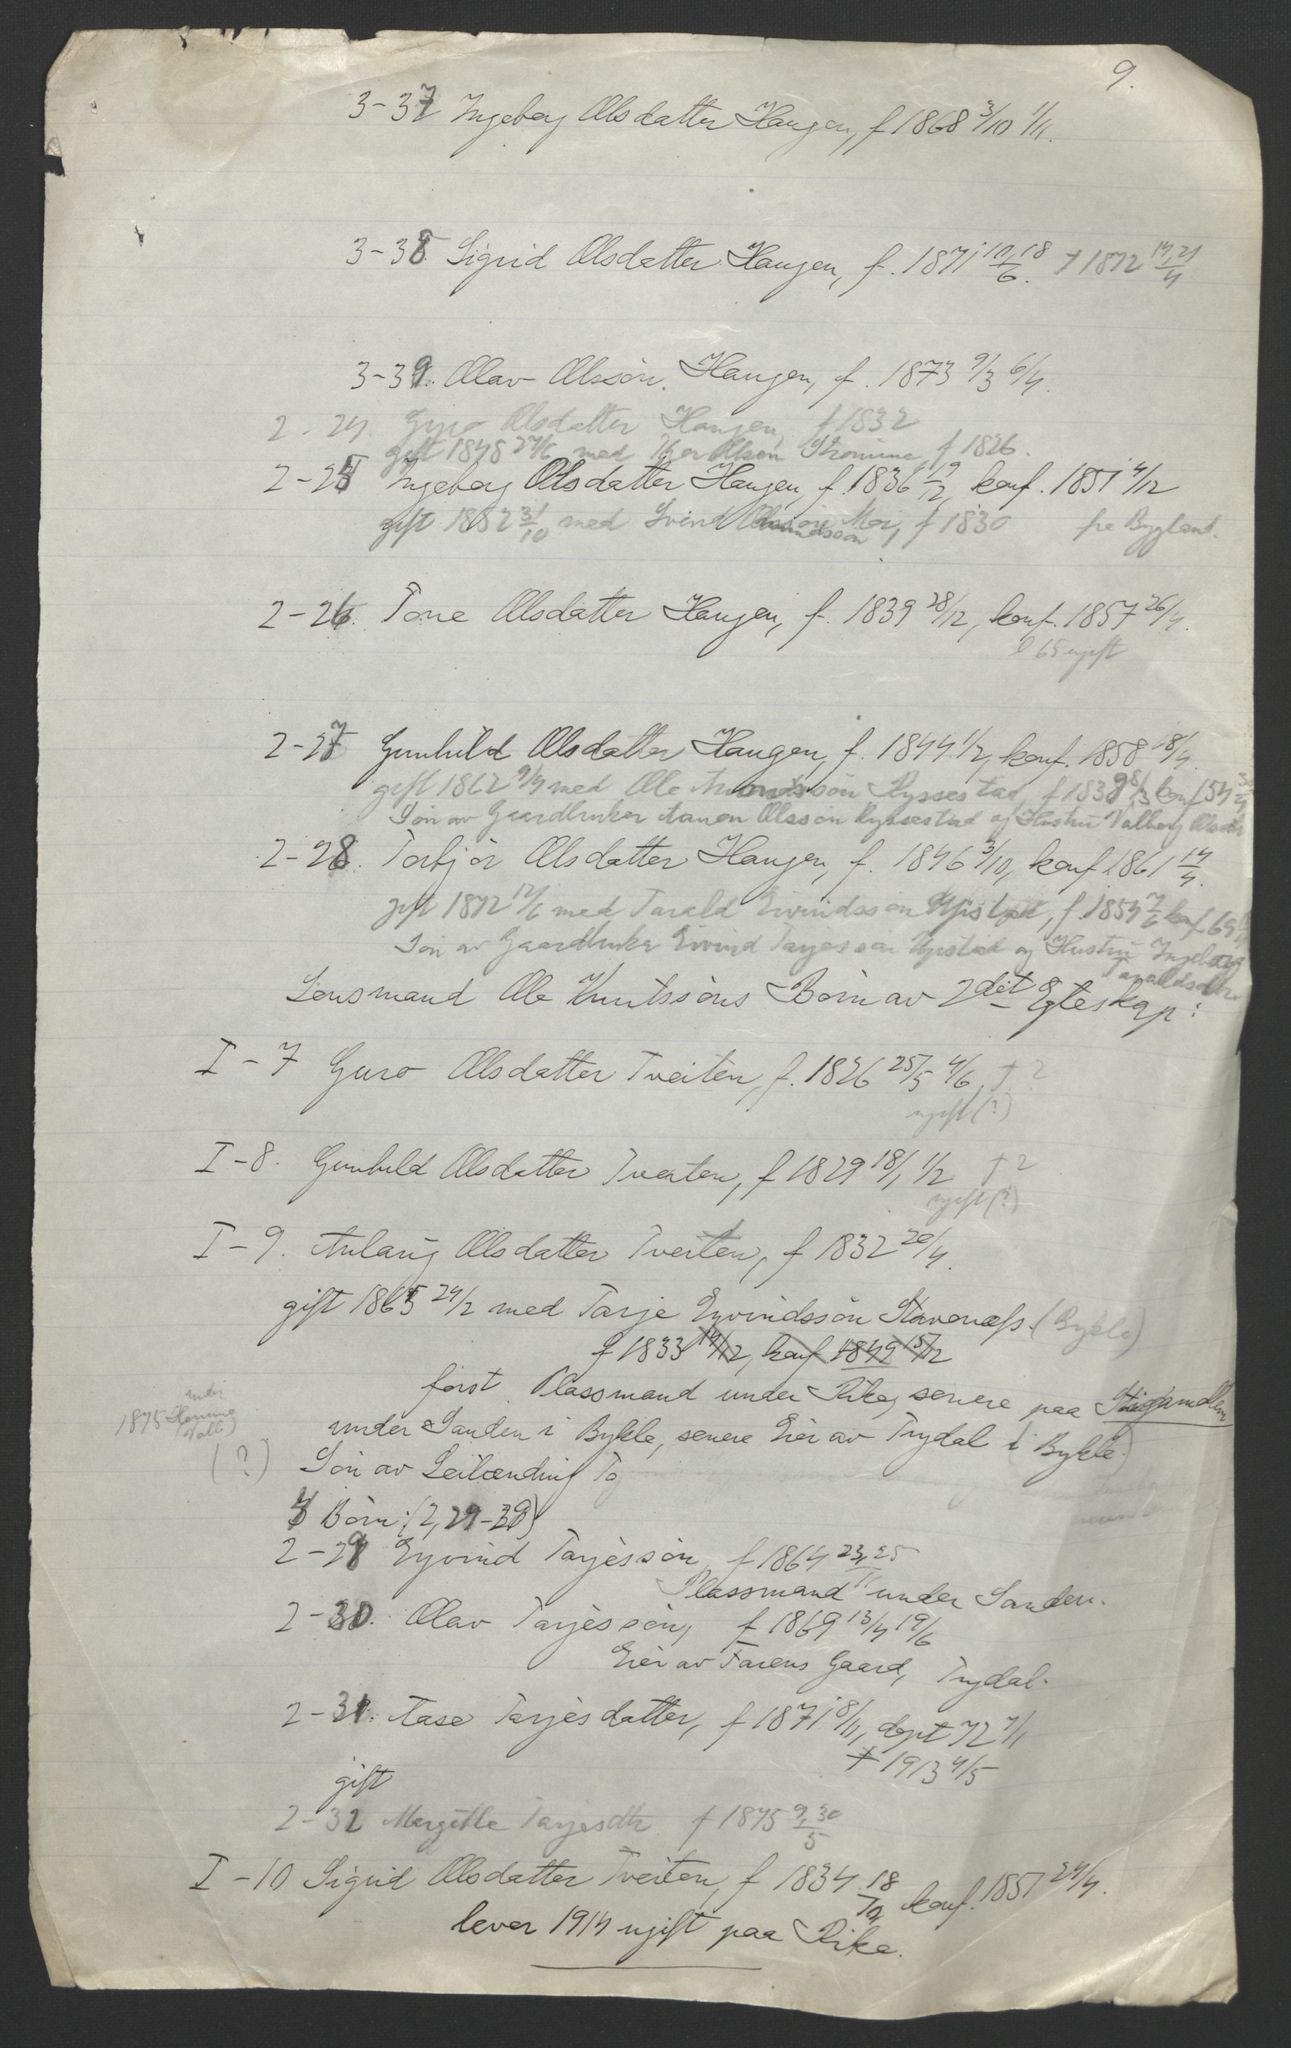 9.
3-37 Ingeborg Olsdatter Haugen, f 1868 3/10 1/11.
3-38 Sigrid Olsdatter Haugen, f. 1871 10,18/6. † 1872 14,21/4
3-39. Olav Olssön. Haugen, f. 1873 9/3 6/4.
2-24 Gyro Olsdatter Haugen, f 1832
gift 1848 24/6 med Olsön f 1826.
2-25 Ingeborg Olsdatter Haugen, f. 1836 19/12, konf. 1851 4/12
gift 1852 31/10 med Svein Moi, f 1830 fra Bygland.
2-26. Tone Olsdatter Haugen, f. 1839 28/12, konf. 1857 26/4.
l 65 ugift
2-27 Gunhild Olsdatter Haugen, f. 1844 1/2, konf. 1858 18/4.
gift 1862 9/4 med Ole Ryssestad, f 1838 konf 54
Sön av Gaardbruker Aanon Olssön Rysestad og Hustru Valborg Olsdtr
2-28. Torbjör Olsdatter Haugen, f. 1846 3/10, konf. 1861 14/4.
gift 1872 12/6 med Tarald Eivindsson Upstad, f. 1854 7/6 konf. 69
Sön av Gaardbruker Eivind Tarjesson Upstad og Hustru Ingeborg
Taraldsdtr
Lensmand Ole Knutssöns Börn av 2det Egteskap:
I-7 Guro Olsdatter Tveiten, f. 1826 25/5 4/6 † ?
ugift (?)
I-8. Gunhild Olsdatter Tveiten, f 1829 18/1 1/2 † ?
ugift (?)
I-9. Anlaug Olsdatter Tveiten, f 1832 20/4.
gift 1865 24/2 med Tarje Eyvindssön Stavenæss. (Bykle)
f 1833 14/12, konf 1849 15/12
först Plassmand under Rike, senere paa
under Sanden i Bykle, senere Eier av Trydal i Bykle.
under
1875 Homme
(Valle)
(?) Sön av Leilænding To
4 Börn: (2, 29-32)
2-29 Eyvind Tarjessön, f 1864 23,25/11
Plassmand under Sanden.
2-30. Olav Tarjessön, f 1869 13/4 19/6
Eier av Farens Gaard, Trydal.
2-31. Aase Tarjesdatter, f 1871 8/11, döpt 72 7/1
† 1913 4/5
gift
2-32 Margitte Tarjesdtr f 1875 9,30/5
I-10 Sigrid Olsdatter Tveiten, f 1834 18/12 konf. 1851 24/4.
lever 1914 ugift paa Rike.